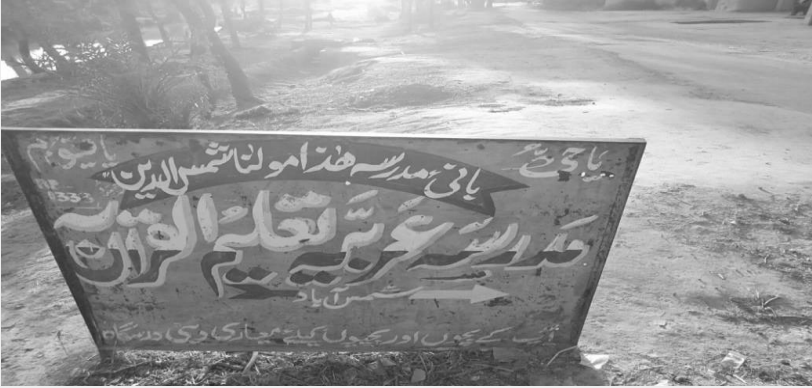 یا حی یا قیوم
بانی مدرسہ ھذا مولنا شمس الدین
مدرسہ عربیہ تعلیم القرآن
شمس آباد
آپ کے بچوں اور بچیوں کیلئے معیاری دینی درسگاہ